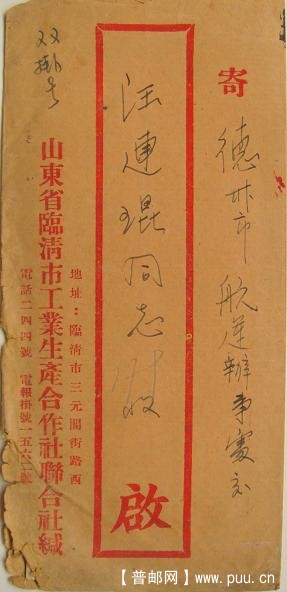 寄
德州市 航运辦事處交
汪連琨同志收
啟
地址：臨清市三元閣街路西
山東省臨清市工業生產合作社聯合社緘
電話二四四號 電報掛號一五六二號
双掛号
【普邮网】www.puu.cn